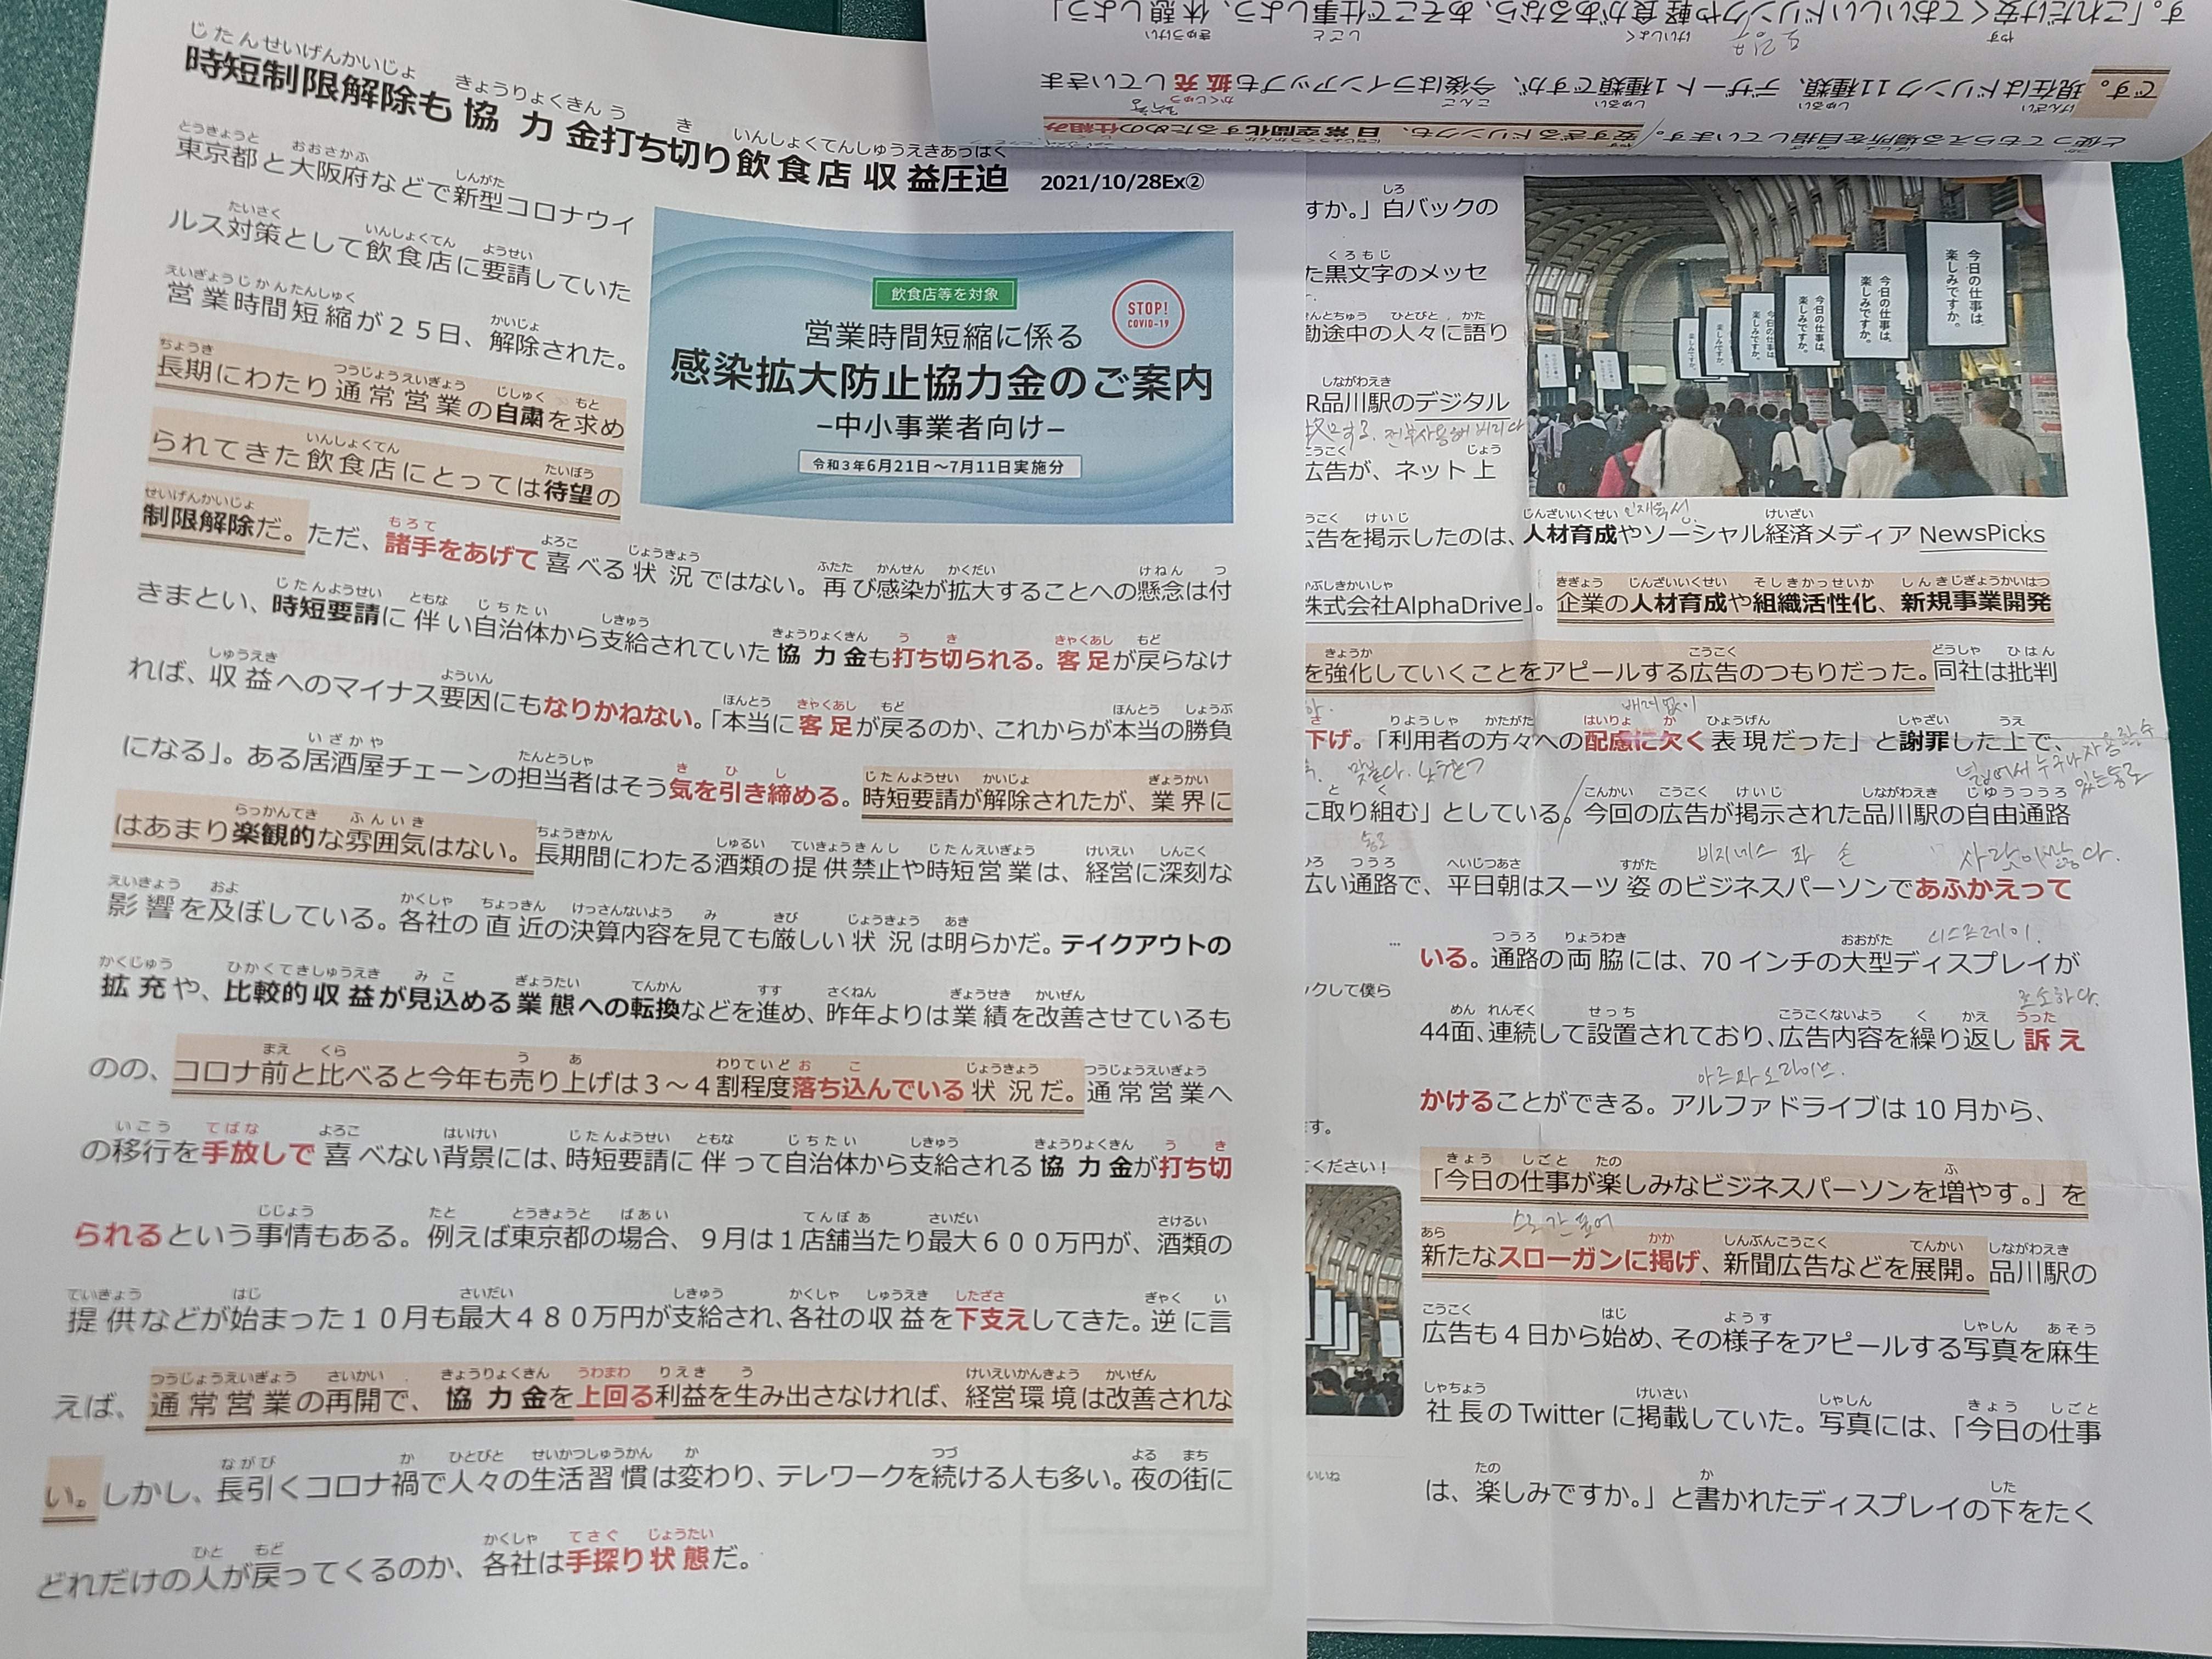 時短制限解除も協力金打ち切り飲食店収益圧迫 2021/10/28Ex②
東京都と大阪府などで新型コロナウイ
ルス対策として飲食店に要請していた
営業時間短縮が25日、解除された。
長期にわたり通常営業の自粛を求め
られてきた飲食店にとっては待望の
制限解除だ。ただ、諸手をあげて喜べる状況ではない。再び感染が拡大することへの懸念は付
きまとい、時短要請に伴い自治体から支給されていた協力金も打ち切られる。客足が戻らなけ
れば、収益へのマイナス要因にもなりかねない。「本当に客足が戻るのか、これからが本当の勝負
になる」。ある居酒屋チェーンの担当者はそう気を引き締める。時短要請が解除されたが、業界に
はあまり楽観的な雰囲気はない。長期間にわたる酒類の提供禁止や時短営業は、経営に深刻な
影響を及ぼしている。各社の直近の決算内容を見ても厳しい状況は明らかだ。テイクアウトの
拡充や、比較的収益が見込める業態への転換などを進め、昨年よりは業績を改善させているも
のの、コロナ前と比べると今年も売り上げは3～4割程度落ち込んでいる状況だ。通常営業へ
の移行を手放しで喜べない背景には、時短要請に伴って自治体から支給される協力金が打ち切
られるという事情もある。例えば東京都の場合、9月は1店舗当たり最大600万円が、酒類の
提供などが始まった10月も最大480万円が支給され、各社の収益を下支えしてきた。逆に言
えば、通常営業の再開で、協力金を上回る利益を生み出さなければ、経営環境は改善されな
い。しかし、長引くコロナ禍で人々の生活習慣は変わり、テレワークを続ける人も多い。夜の街に
どれだけの人が戻ってくるのか、各社は手探り状態だ。
飲食店等を対象
STOP!
COVID-19
営業時間短縮に係る
感染拡大防止協力金のご案内
−中小事業者向け−
令和3年6月21日～7月11日実施分
と使ってもらえる場所を目指しています。安すぎるドリンクも、日常空間化するための仕組み
です。現在はドリンク11種類、デザート1種類ですが、今後はラインアップも拡充していきま
す。「これだけ安くておいしいドリンクや軽食があるなら、あそこで仕事しよう、休憩しよう」
今日の仕事は、
楽しみですか。
すか。」白バックの
た黒文字のメッセ
勤途中の人々に語り
R品川駅のデジタル
広告が、ネット上
広告を掲示したのは、人材育成やソーシャル経済メディア NewsPicks
株式会社AlphaDrive」。企業の人材育成や組織活性化、新規事業開発
を強化していくことをアピールする広告のつもりだった。同社は批判
배려없이
下げ。「利用者の方々への配慮に欠く表現だった」と謝罪した上で、
に取り組む」としている。今回の広告が掲示された品川駅の自由通路
広い通路で、平日朝はスーツ姿のビジネスパーソンであふかえって
いる。通路の両脇には、70インチの大型ディスプレイが
44面、連続して設置されており、広告内容を繰り返し訴え
かけることができる。アルファドライブは10月から、
「今日の仕事が楽しみなビジネスパーソンを増やす。」を
新たなスローガンに掲げ、新聞広告などを展開。品川駅の
広告も4日から始め、その様子をアピールする写真を麻生
社長のTwitterに掲載していた。写真には、「今日の仕事
は、楽しみですか。」と書かれたディスプレイの下をたく
ックして僕ら
す。
ください！
いいね